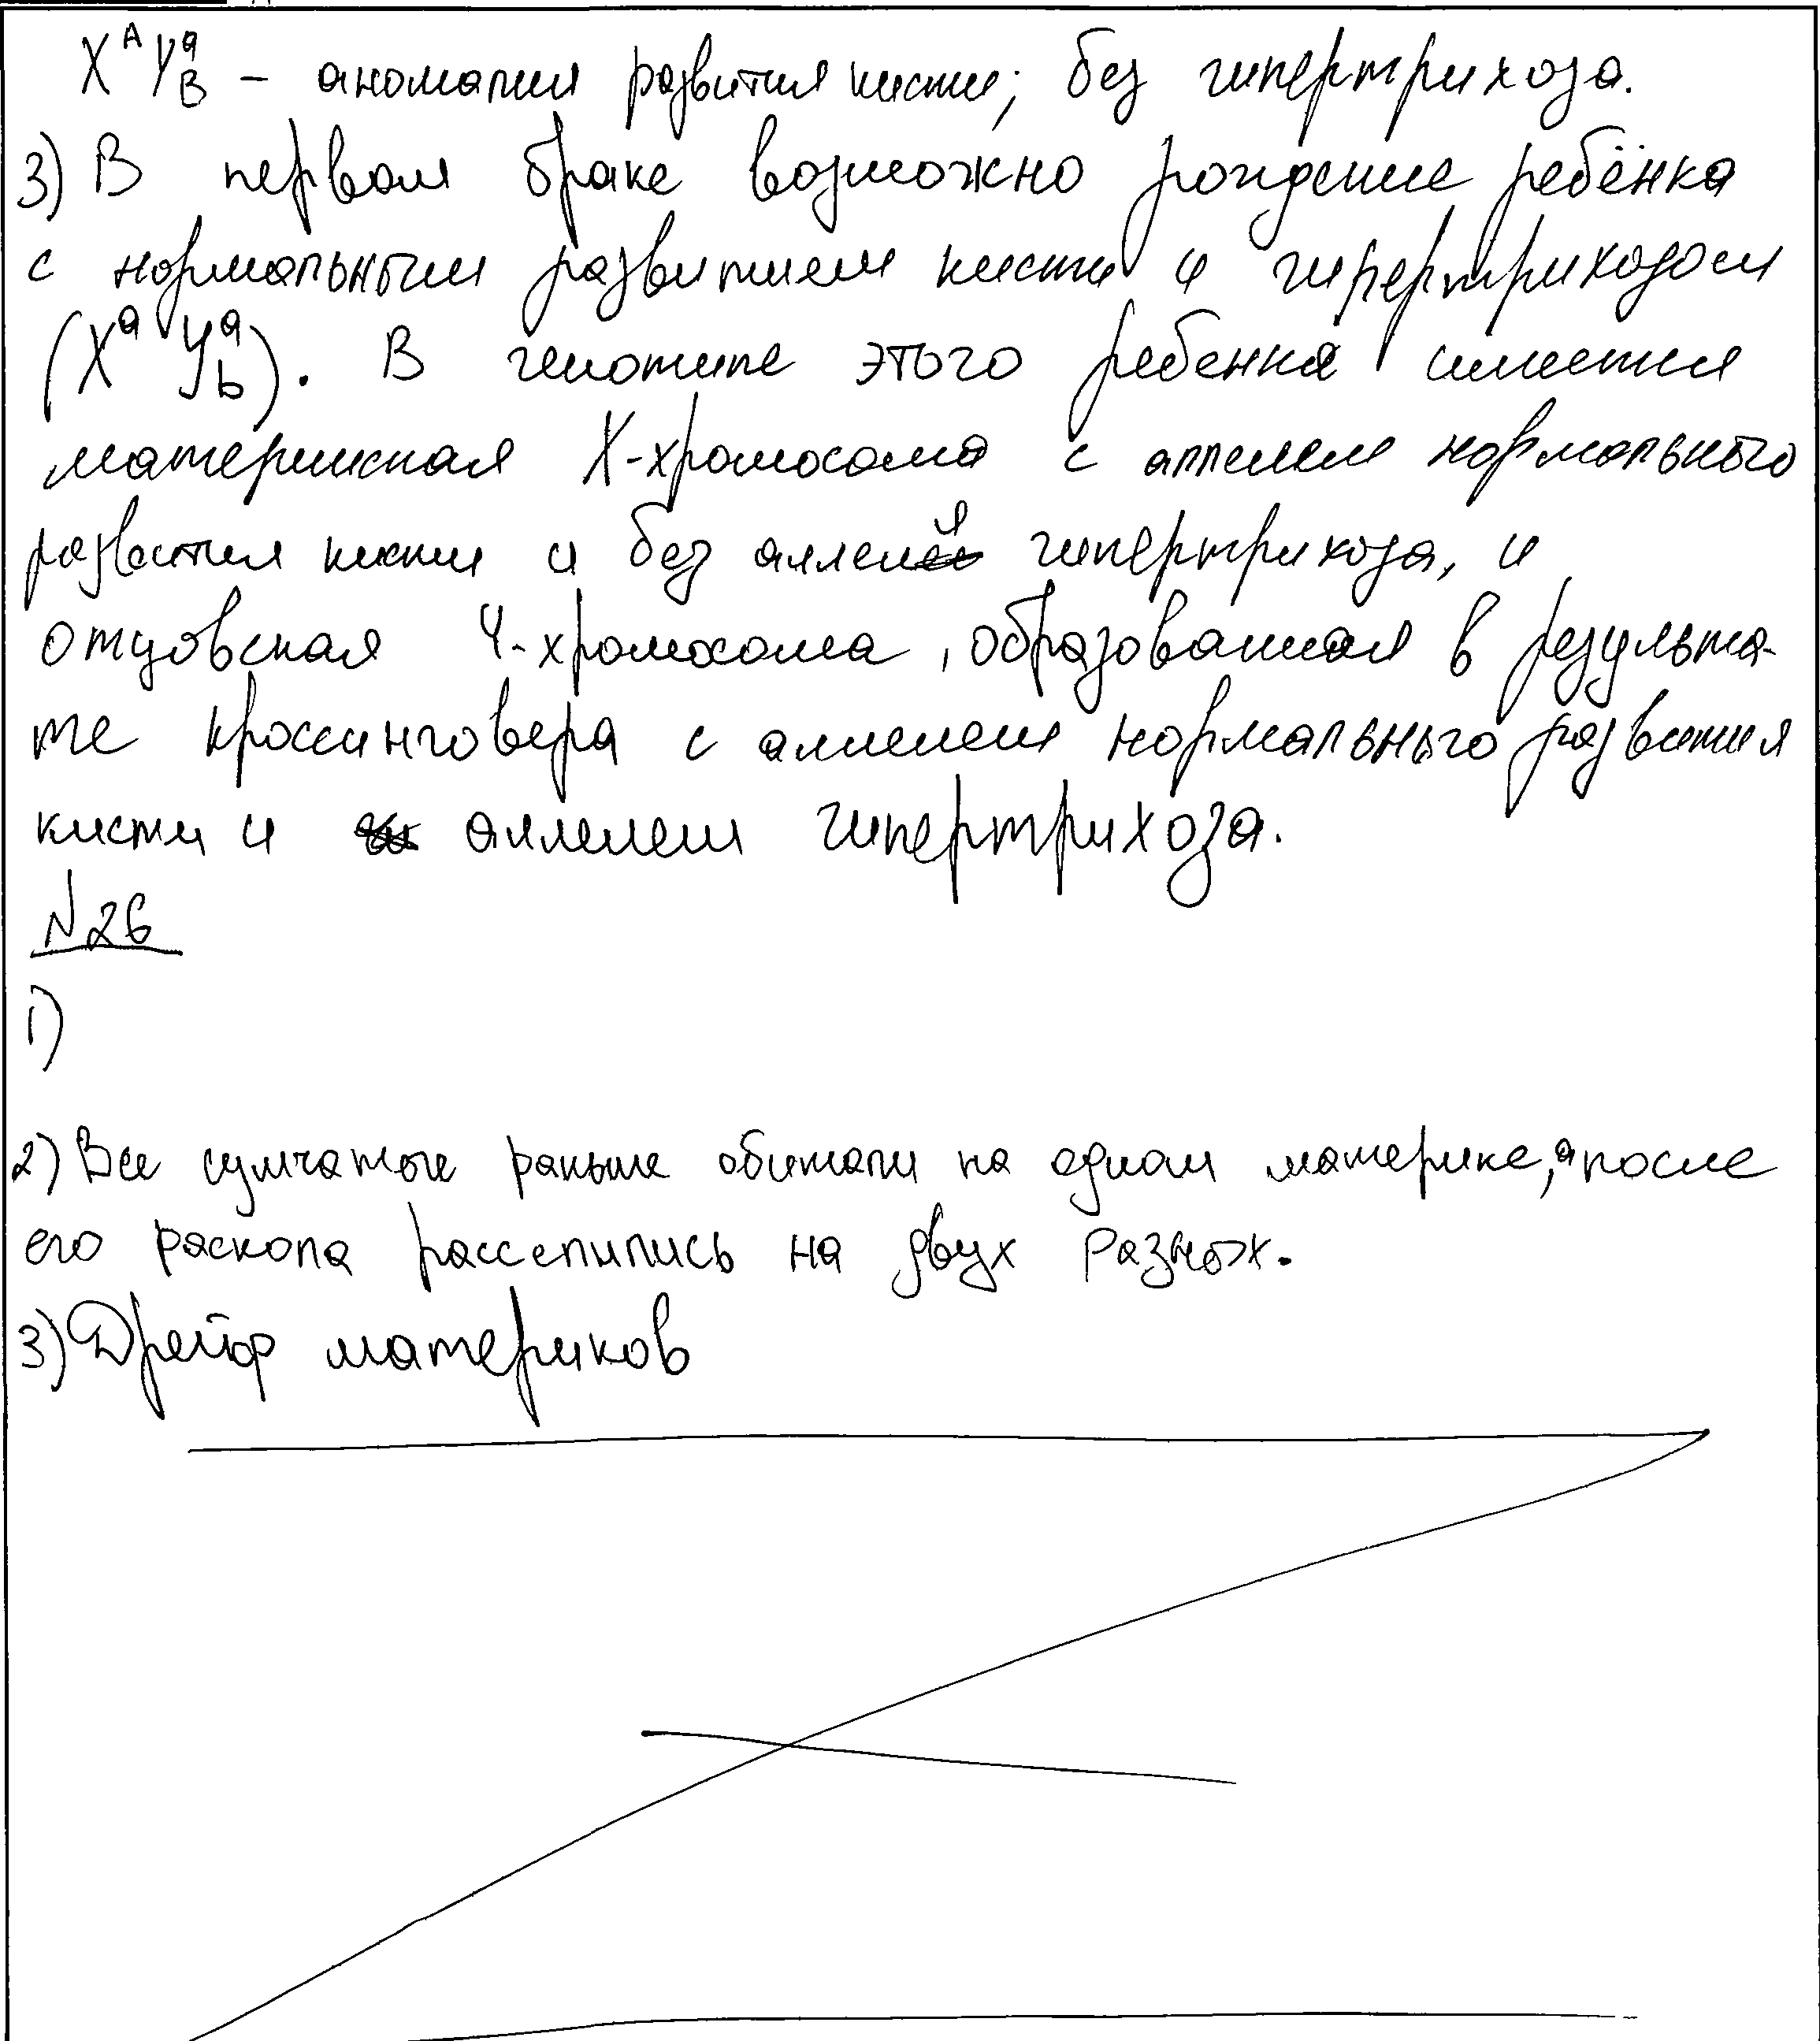 X^A Y^a_B – аномалия развития кисти; без гипертрихоза.
3) В первом браке возможно рождение ребёнка
с нормальным развитием кисти и гипертрихозом
(X^a Y^a_b). В генотипе этого ребенка имеется
материнская X-хромосома с аллелем нормального
развития кисти и без аллеля гипертрихоза, и
отцовская Y-хромосома, образованная в результа-
те кроссинговера с аллелем нормального развития
кисти и аллелем гипертрихоза.
№26
1)
2) Все сумчатые раньше обитали на одном материке, а после
его раскола расселились на двух разных.
3) Дрейф материков